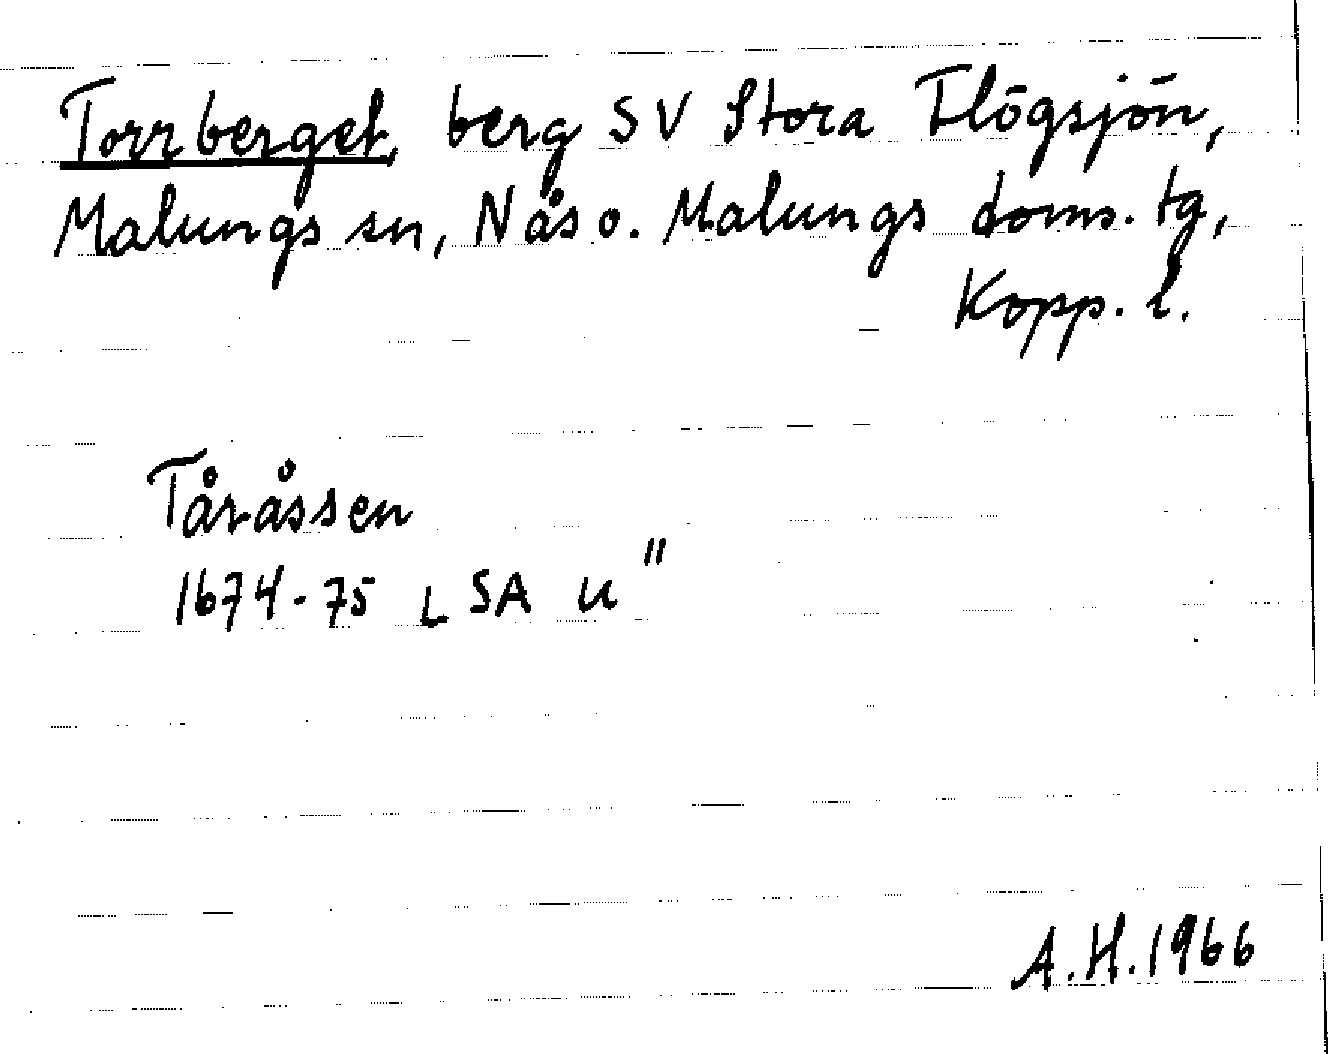 Torrberget, berg SV Stora Flögsjön,
Malungs sn, Nås o. Malungs doms. tg,
Kopp. l.
Tåråssen
1674-75 LSA U"
A.H. 1966